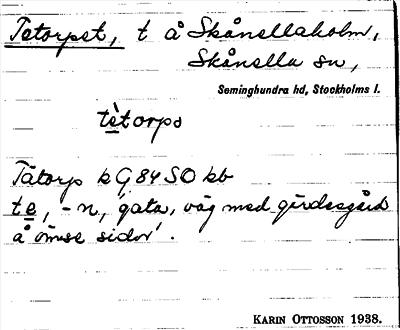 Tetorpet, t å Skånellaholm,
Skånella sn,
Seminghundra hd, Stockholms l.
tètorps
Tätorp k G 84 SO kb
te, -n, 'gata, väg med gärdesgård
å ömse sidor'.
KARIN OTTOSSON 1938.